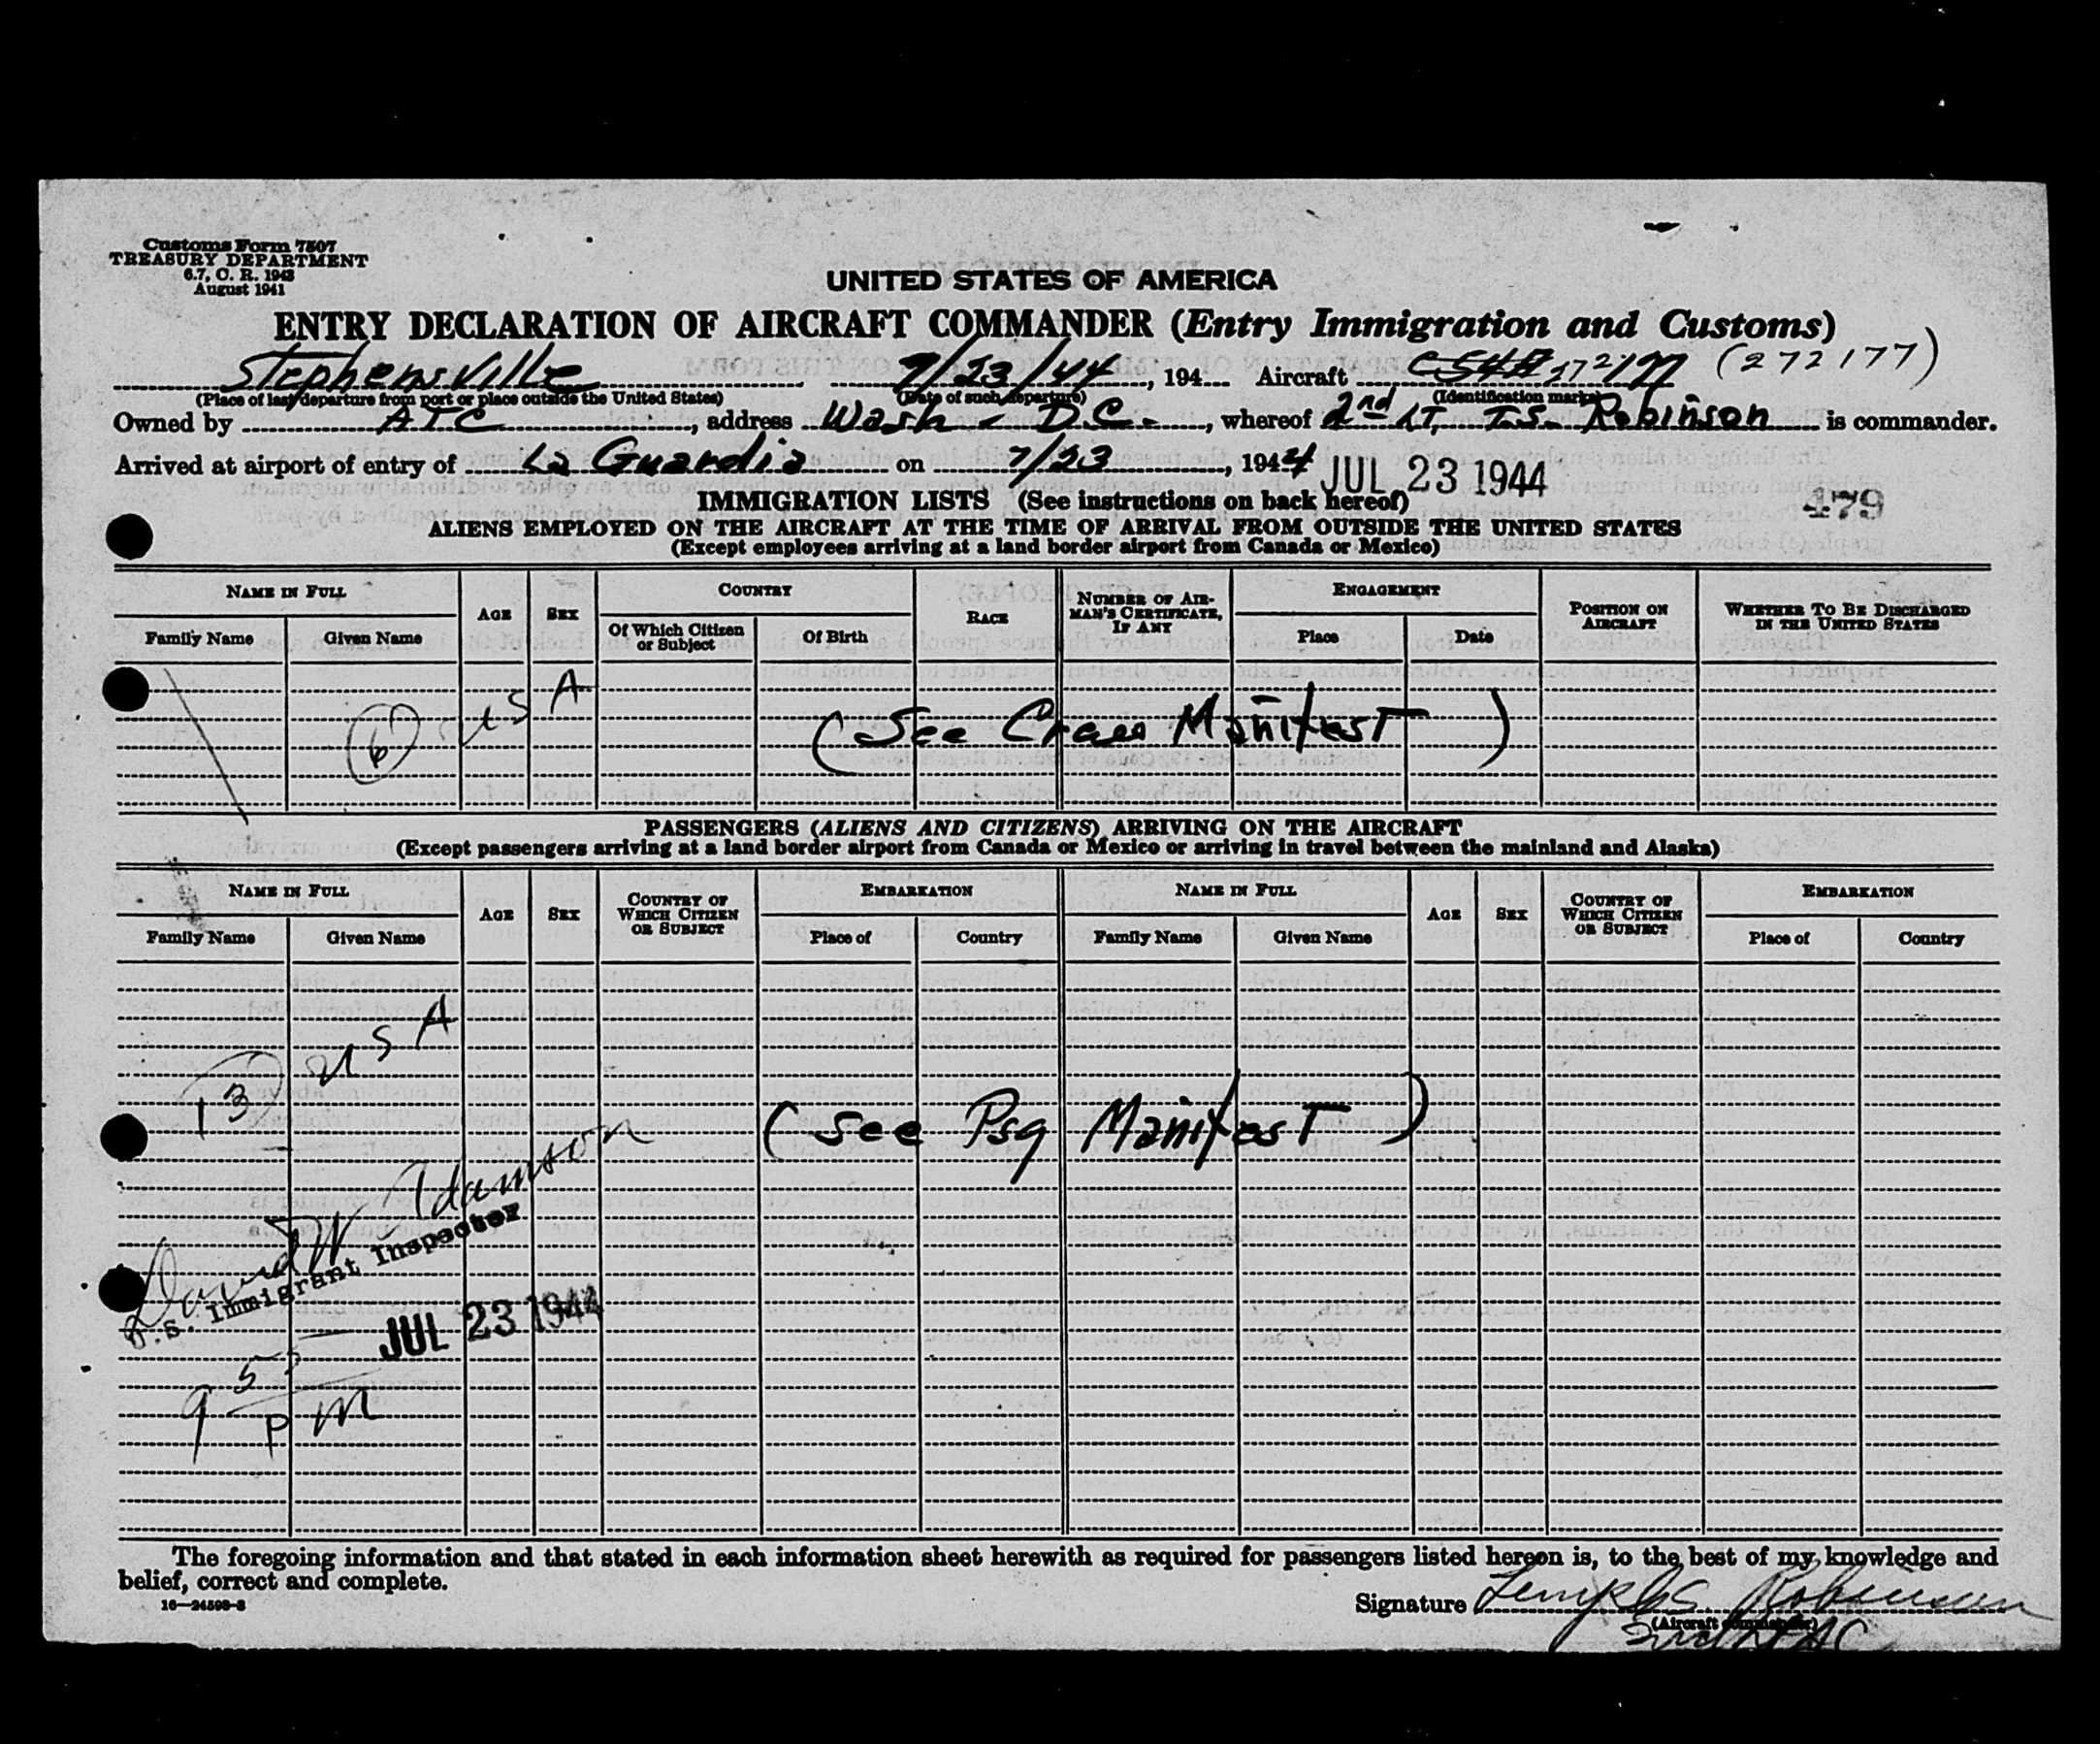 Customs Form 7507
TREASURY DEPARTMENT
6.7, C. R. 1943
August 1941
UNITED STATES OF AMERICA
ENTRY DECLARATION OF AIRCRAFT COMMANDER (Entry Immigration and Customs)
Stephensville 7/23/44, 194 Aircraft 272177 (272177)
(Place of last departure from port or place outside the United States) (Date of such departure) (Identification marks)
Owned by ATC, address Wash - D.C., whereof 2nd LT, T.S. Robinson is commander.
Arrived at airport of entry of La Guardia on 7/23, 1944 JUL 23 1944
IMMIGRATION LISTS (See instructions on back hereof)
479
ALIENS EMPLOYED ON THE AIRCRAFT AT THE TIME OF ARRIVAL FROM OUTSIDE THE UNITED STATES
(Except employees arriving at a land border airport from Canada or Mexico)
NAME IN FULL AGE SEX COUNTRY RACE NUMBER OF AIRMAN'S CERTIFICATE, IF ANY ENGAGEMENT POSITION ON AIRCRAFT WHETHER TO BE DISCHARGED IN THE UNITED STATES
Family Name Given Name Of Which Citizen or Subject Of Birth Place Date
6 USA
(See Crew Manifest)
PASSENGERS (ALIENS AND CITIZENS) ARRIVING ON THE AIRCRAFT
(Except passengers arriving at a land border airport from Canada or Mexico or arriving in travel between the mainland and Alaska)
NAME IN FULL AGE SEX COUNTRY OF WHICH CITIZEN OR SUBJECT EMBARKATION NAME IN FULL AGE SEX COUNTRY OF WHICH CITIZEN OR SUBJECT EMBARKATION
Family Name Given Name Place of Country Family Name Given Name Place of Country
13 USA
(See Psg Manifest)
David W Adamson
U.S. Immigrant Inspector
JUL 23 1944
9 55 PM
The foregoing information and that stated in each information sheet herewith as required for passengers listed hereon is, to the best of my knowledge and
belief, correct and complete.
16—24598-3
Signature Temple S Robinson
(Aircraft commander)
2nd Lt AC